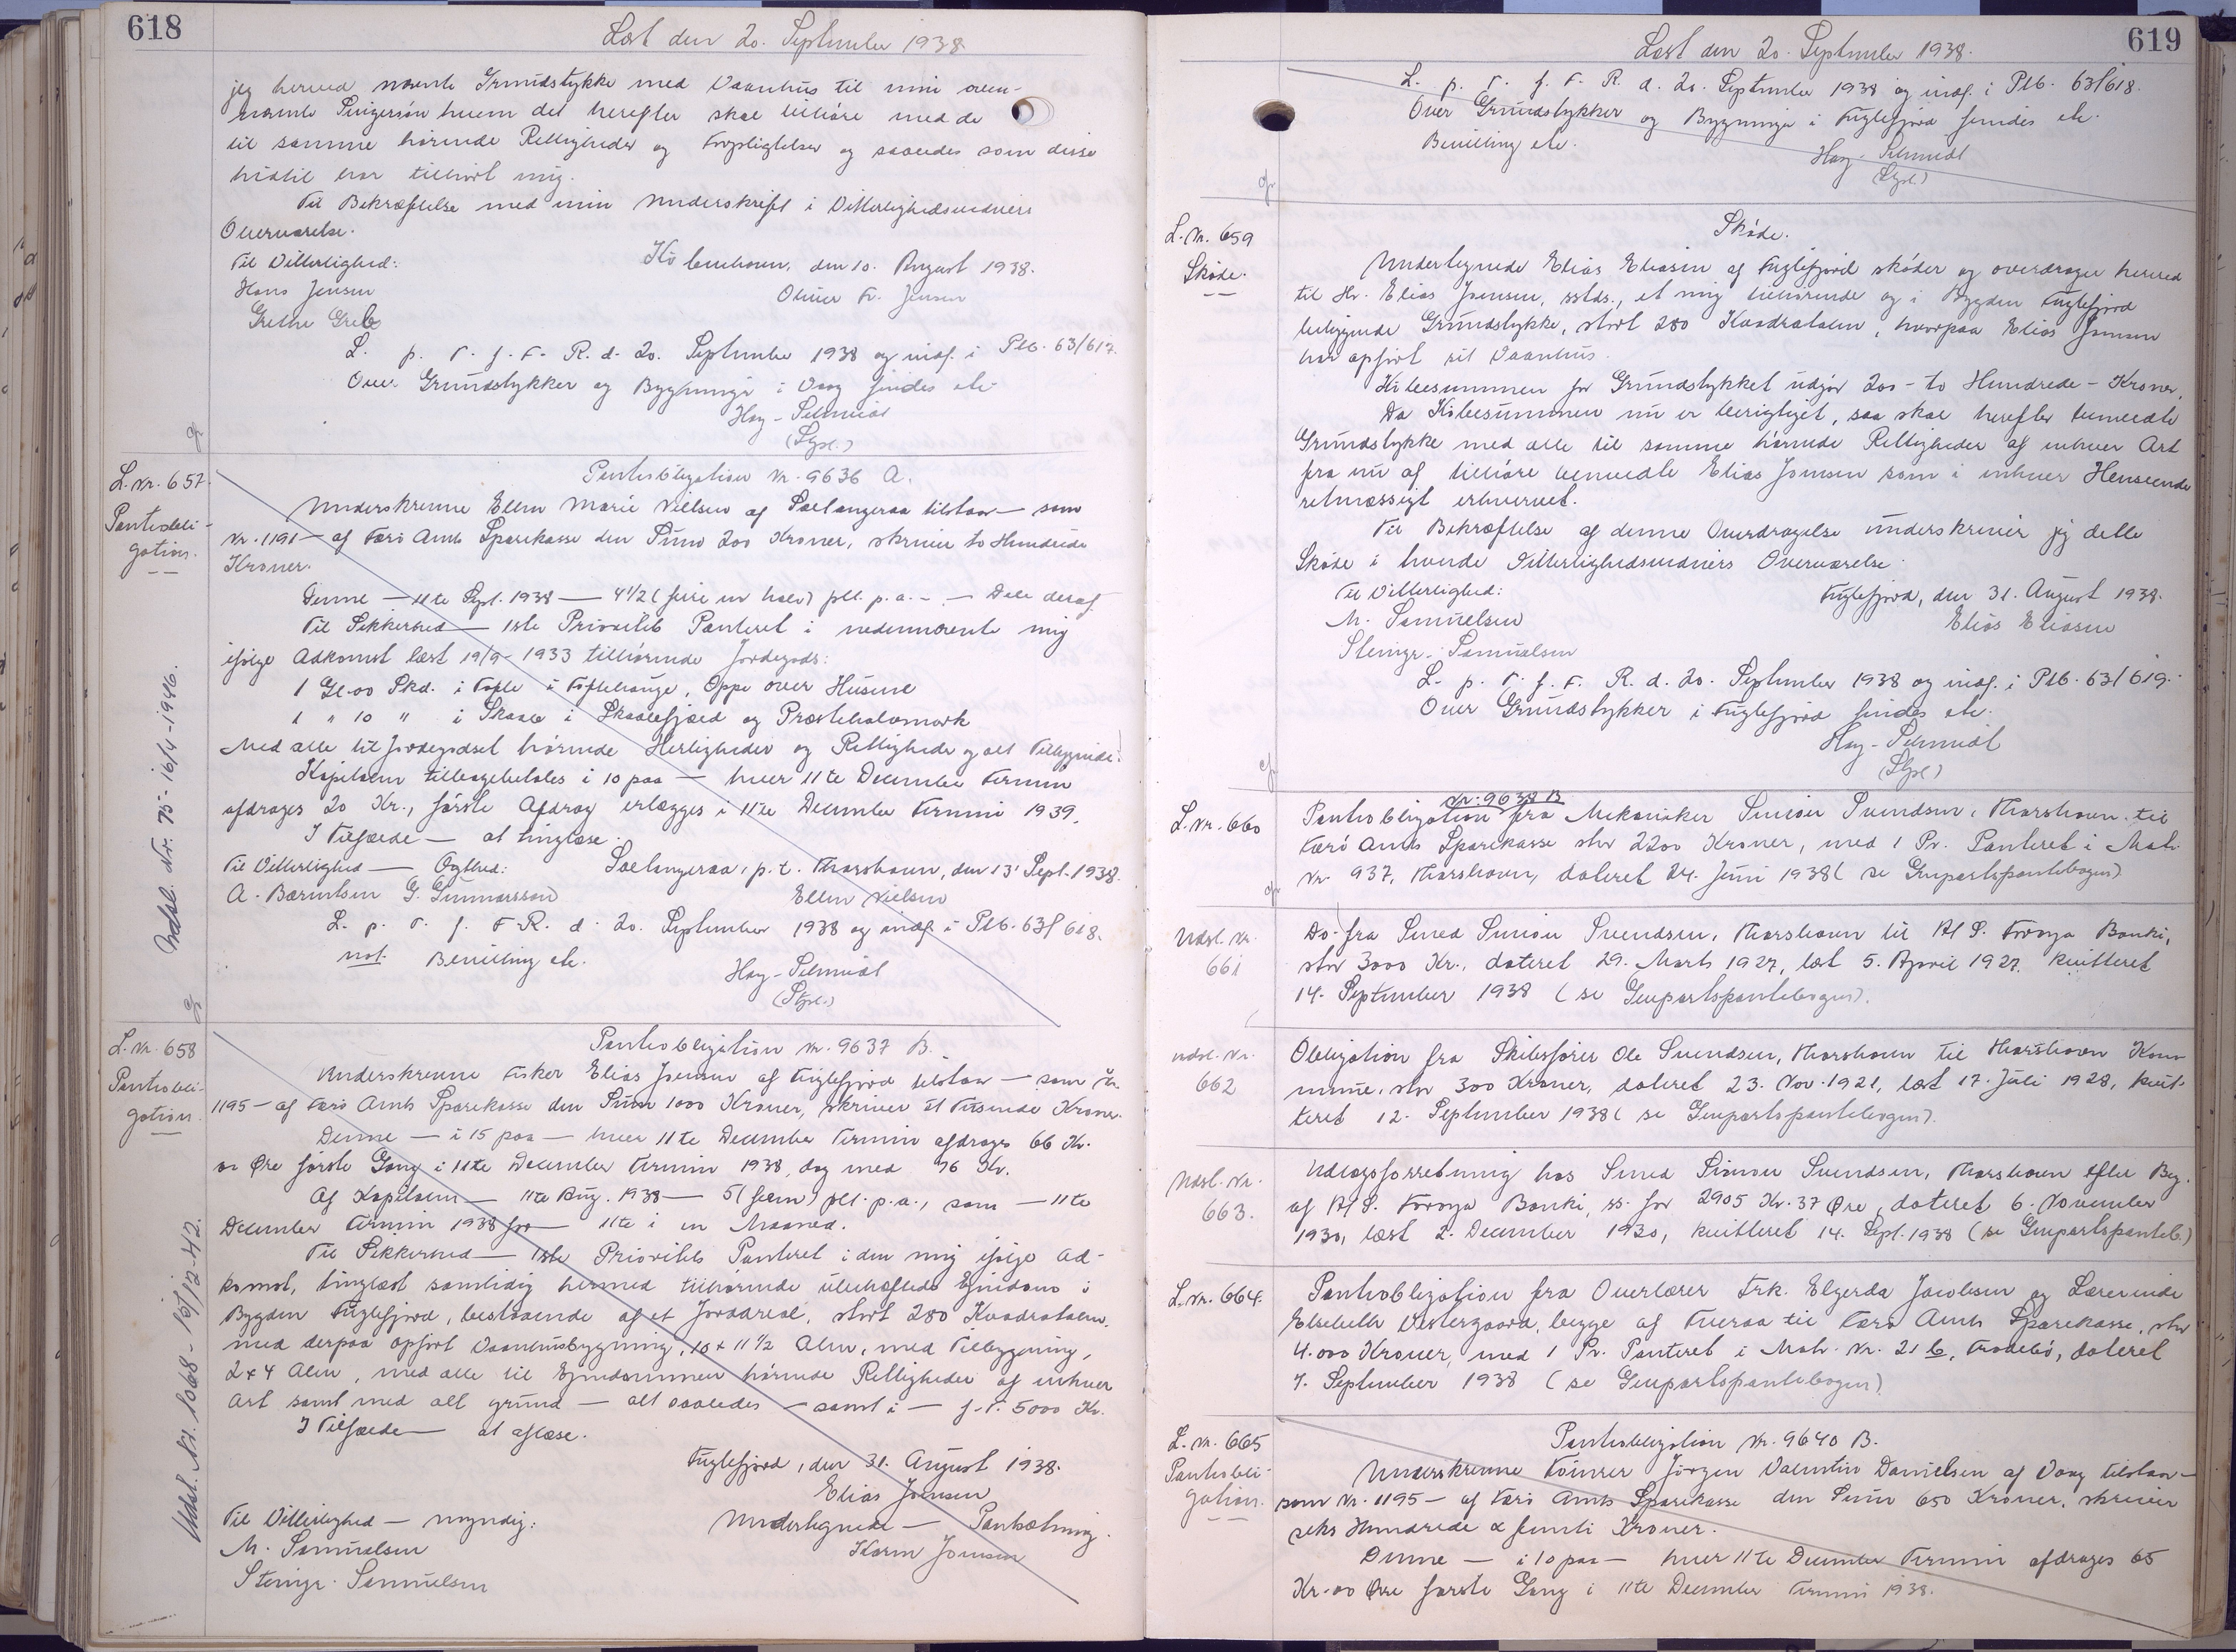 618
Læst den 20. September 1938.
jeg herved nævnte Grundstykke med Vaanhus til min oven-
nævnte Plejesøn hvem det herefter skal tilhøre med de
til samme hørende Rettigheder og Forpligtelser og saaledes som disse
hidtil har tilhørt mig.
Til Bekræftelse med min Underskrift i Vitterlighedsvidners
Overværelse.
Til Vitterlighed:
København, den 10. August 1938.
Hans Jensen
Oliver Fr. Jensen
Grethe Greb
L. p. T. f. F. R. d. 20. September 1938 og indf. i Ptb. 63/617.
Over Grundstykker og Bygninger i Vaag findes ete.
Høy-Schmidt
(Sgsl.)
L. Nr. 657.
Pantobli-
gation.
Pantobligation Nr. 9636 A.
Underskrevne Ellen Marie Nielsen af Saltangeraa tilstaar — som
Nr. 1191 — af Færø Amts Sparekasse den Sum 200 Kroner, skriver to Hundrede
Kroner.
Denne — 11te Sept. 1938 — 4 1/2 (fire en halv) pct. p. a. — — Dele deraf
Til Sikkerhed — 1ste Prioritets Panteret i nedennævnte mig
ifølge Adkomst læst 19/9-1933 tilhørende Jordegods:
1 Gl. 00 Skd. i Tofte i Toftehauge, Oppe over Husene
1 " 10 " i Skaale i Skaalefjæld og Præstehalvmark
Med alle til Jordegodset hørende Herligheder og Rettigheder og alt Tilliggende.
Kapitalen tilbagebetales i 10 paa — hver 11te December Termin
afdrages 20 Kr., første Afdrag erlægges i 11te December Termin 1939.
I Tilfælde — at tinglæse.
Til Vitterlighed — Ægthed:
Saltangeraa, p. t. Thorshavn, den 13' Sept. 1938.
A. Bærentsen G. Gunnarsson
Ellen Nielsen
L. p. T. f. F. R. d. 20. September 1938 og indf. i Ptb. 63/618.
not. Bevilling ete.
Høy-Schmidt
(Sgsl.)
Udsl. Nr. 75 - 16/4-1946.
L. Nr. 658
Pantobli-
gation.
Pantobligation Nr. 9637 B.
Underskrevne Fisker Elias Joensen af Fuglefjord tilstaar — som Nr.
1195 — af Færø Amts Sparekasse den Sum 1000 Kroner, skriver et Tusende Kroner.
Denne — i 15 paa — hver 11te December Termin afdrages 66 Kr.
00 Øre første Gang i 11te December Termin 1938, dog med 76 Kr.
Af Kapitalen — 11te Aug. 1938 — 5 (fem) pct. p. a., som — 11te
December Termin 1938 for — 11te i en Maaned.
Til Sikkerhed — 1ste Prioritets Panteret i den mig ifølge Ad-
komst, tinglæst samtidig hermed tilhørende ubehæftede Ejendom i
Bygden Fuglefjord, bestaaende af et Jordareal, stort 280 Kvadratalen,
med derpaa opført Vaanhusbygning, 10 x 11 1/2 Alen, med Tilbygning,
2 x 4 Alen, med alle til Ejendommen hørende Rettigheder af enhver
Art samt med alt grund — alt saaledes — samt i — f. T. 5000 Kr.
I Tilfælde — at aflæse.
Fuglefjord, den 31. August 1938.
Elias Joensen
Til Vitterlighed — myndig:
Undertegnede — Pantsætning.
M. Samuelsen
Karin Joensen
Steingr. Samuelsen
Udsl. Nr. 1068 - 16/12-42.
619
Læst den 20. September 1938.
L. p. T. f. F. R. d. 20. September 1938 og indf. i Ptb. 63/618.
Over Grundstykker og Bygninger i Fuglefjord findes ete.
Bevilling ete.
Høy-Schmidt
(Sgsl.)
L. Nr. 659
Skøde.
Skøde.
Undertegnede Elias Eliasen af Fuglefjord skøder og overdrager herved
til Hr. Elias Joensen, sstds., et mig tilhørende og i Bygden Fuglefjord
beliggende Grundstykke, stort 280 Kvadratalen, hvorpaa Elias Joensen
har opført sit Vaanhus.
Købesummen for Grundstykket udgør 200 - to Hundrede - Kroner.
Da Købesummen nu er berigtiget, saa skal herefter bemeldte
Grundstykke med alle til samme hørende Rettigheder af enhver Art
fra nu af tilhøre bemeldte Elias Joensen som i enhver Henseende
retmæssigt erhvervet.
Til Bekræftelse af denne Overdragelse underskriver jeg dette
Skøde i hvende Vitterlighedsvidners Overværelse.
Til Vitterlighed:
Fuglefjord, den 31. August 1938.
M. Samuelsen
Elias Eliasen
Steingr. Samuelsen
L. p. T. f. F. R. d. 20. September 1938 og indf. i Ptb. 63/619.
Over Grundstykker i Fuglefjord findes ete.
Høy-Schmidt
(Sgsl.)
L. Nr. 660
Nr. 9638 B
Pantobligation fra Mekaniker Simon Svendsen, Thorshavn til
Færø Amts Sparekasse stor 2200 Kroner, med 1 Pr. Panteret i Matr.
Nr. 937, Thorshavn, dateret 24. Juni 1938 (se Genpartspantebogen)
Udsl. Nr.
661
Do. fra Smed Simon Svendsen, Thorshavn til A/S. Føroya Banki,
stor 3000 Kr., dateret 29. Marts 1927, læst 5. April 1927. kvitteret
14. September 1938 (se Genpartspantebogen).
Udsl. Nr.
662
Obligation fra Skibsfører Ole Svendsen, Thorshavn til Thorshavn Kom-
mune, stor 300 Kroner, dateret 23. Nov. 1921, læst 17. Juli 1928, kvit-
teret 12. September 1938 (se Genpartspantebogen).
Udsl. Nr.
663.
Udlægsforretning hos Smed Simon Svendsen, Thorshavn efter Beg.
af A/S. Føroya Banki, ss. for 2905 Kr. 37 Øre, dateret 6. November
1930, læst 2. December 1930, kvitteret 14. Sept. 1938 (se Genpartspanteb.)
L. Nr. 664.
Pantobligation fra Overlærer Frk. Elgerda Jacobsen og Lærerinde
Elsebeth Vestergaard, begge af Tveraa til Færø Amts Sparekasse, stor
4.000 Kroner, med 1 Pr. Panteret i Matr. Nr. 21 b, Trodebø, dateret
7. September 1938 (se Genpartspantebogen)
L. Nr. 665
Pantobli-
gation.
Pantobligation Nr. 9640 B.
Underskrevne Tømrer Jørgen Valentin Danielsen af Vaag tilstaar —
som Nr. 1195 — af Færø Amts Sparekasse den Sum 650 Kroner, skriver
seks Hundrede & femti Kroner.
Denne — i 10 paa — hver 11te December Termin afdrages 65
Kr. 00 Øre første Gang i 11te December Termin 1938.